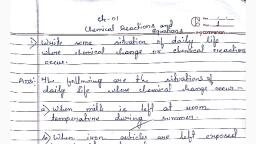 Ch-01
Chemical Reactions and
Equations
1) Write some situation of daily life
where chemical change or chemical reaction
occur.
Ans: The following are the situations of
daily life where chemical change occur-
a) When milk is left at room
temperature during summer.
b) When iron articles are left exposed